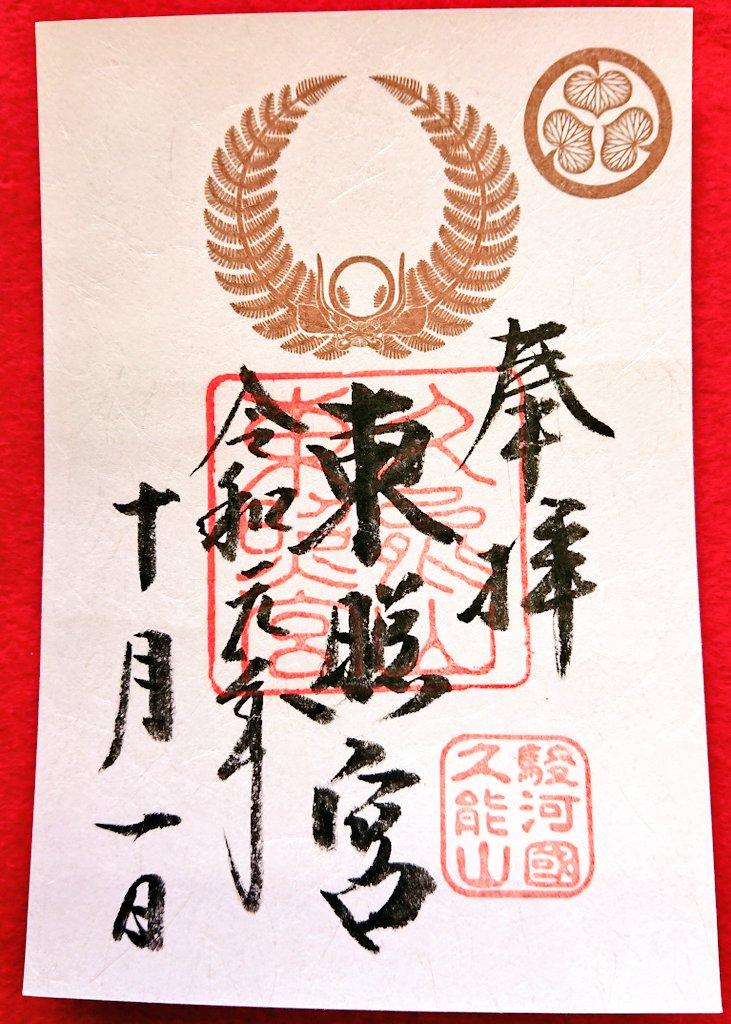 奉拝
東照宮
令和元年
十月一日
久能山
東照宮
駿河國
久能山